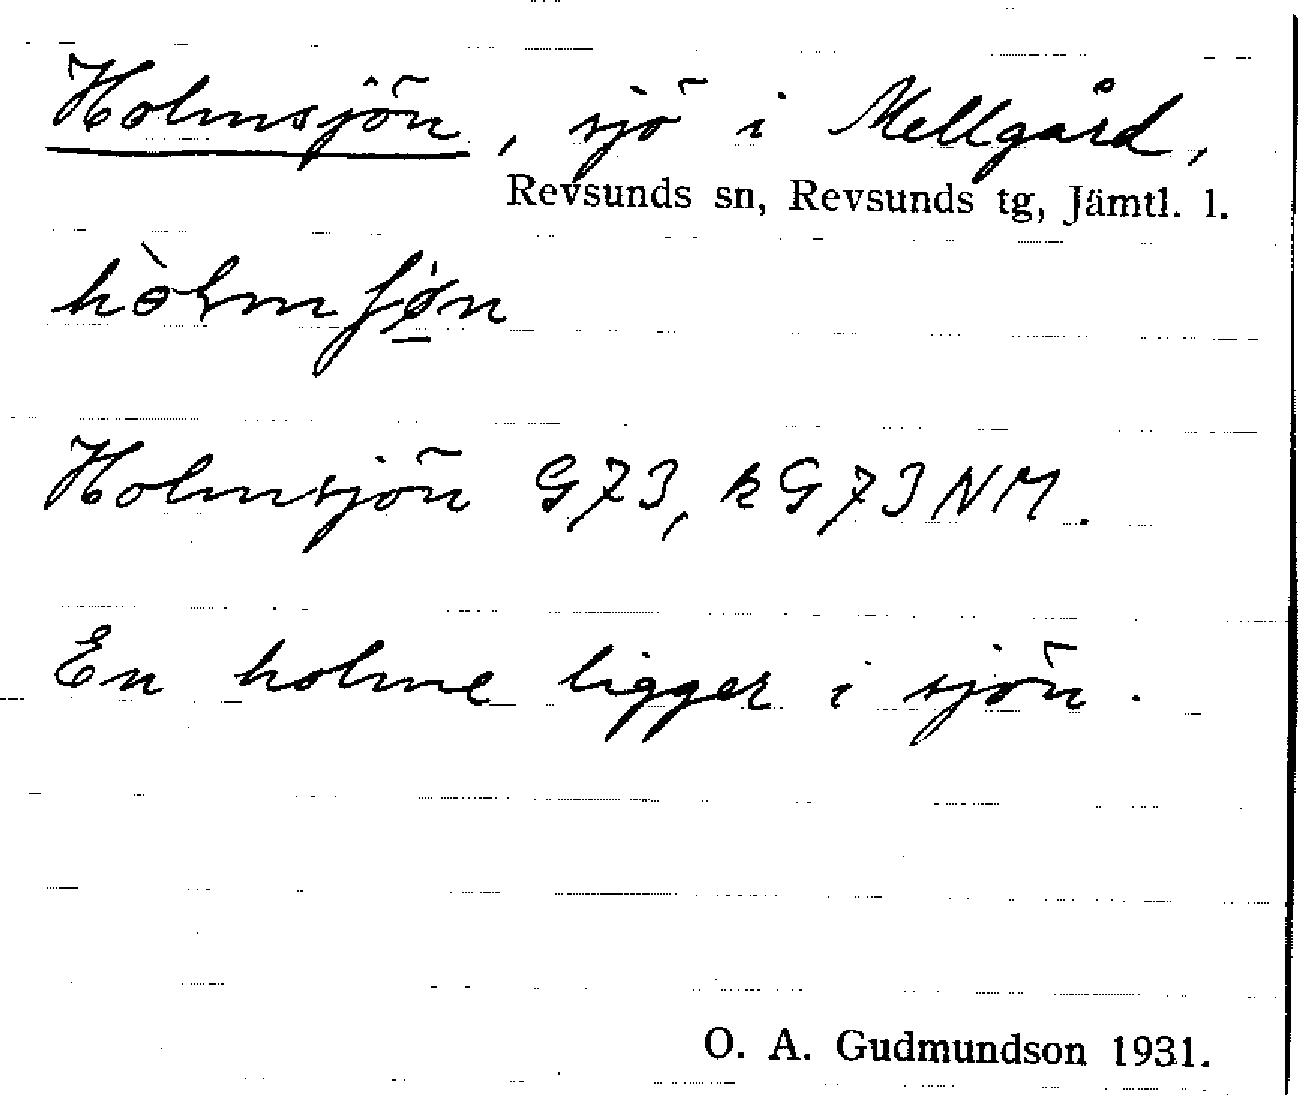 Holmsjön, sjö i Mellgård,
Revsunds sn, Revsunds tg, Jämtl. l.
Holmsjön G73, kG73NM.
En holme ligger i sjön.
O. A. Gudmundson 1931.